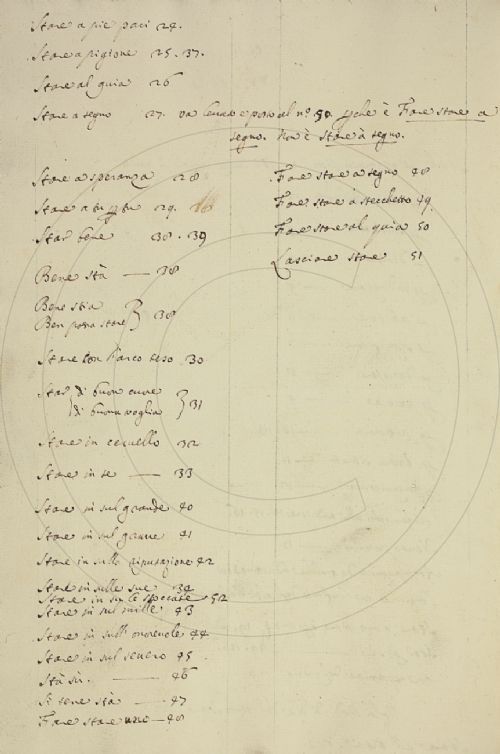 Stare a piè pari 24.
Stare a pigione 25. 37.
Stare al quia 26
Stare a segno 27. va levato e posto al nº. 50. pche è Fare stare a
segno. Non è Stare à segno.
Stare a speranza 28
Stare a tu p tu 29.
Star bene 38. 39
Bene stà — 38
Bene stia
Ben possa stare } 38
Stare con l'arco teso 30
Star di buon cuore
di buona voglia } 31
Stare in cervello 32
Stare in se — 33
Stare in sul grande 40
Stare in sul grave 41
Stare in sulla riputazione 42
Stare in sulle sue 34
Stare in su le 52
Stare in sul mille 43
Stare in sull' onorevole 44
Stare in sul severo 45
Stà sù. — 46
Si tene stà — 47
Fare stare uno — 48
Fare stare a segno 48
Fare stare à stecchetto 49.
Fare stare al quia 50
Lasciare stare 51